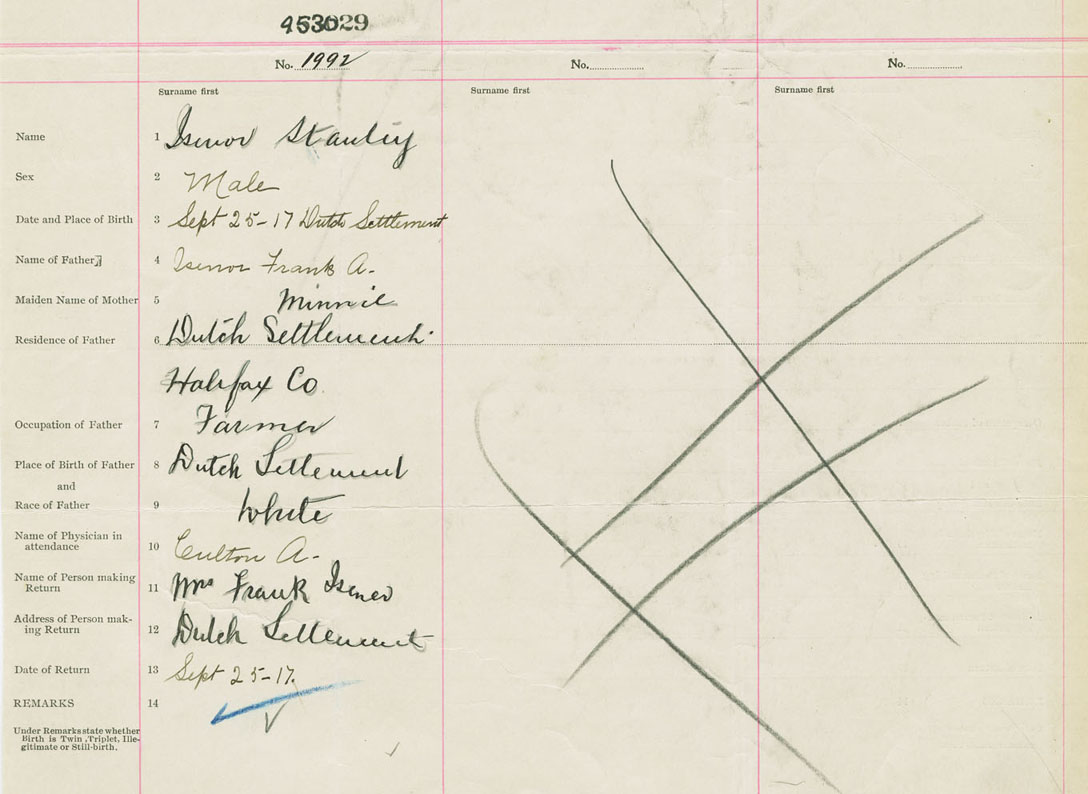 453029
No. 1992 No. No.
Surname first Surname first Surname first
Name 1 Isenor Stanley
Sex 2 Male
Date and Place of Birth 3 Sept 25-17 Dutch Settlement
Name of Father 4 Isenor Frank A.
Maiden Name of Mother 5 Minnie
Residence of Father 6 Dutch Settlement
Halifax Co.
Occupation of Father 7 Farmer
Place of Birth of Father 8 Dutch Settlement
and
Race of Father 9 White
Name of Physician in
attendance 10 A.
Name of Person making
Return 11 Mrs Frank Isenor
Address of Person mak-
ing Return 12 Dutch Settlement
Date of Return 13 Sept 25-17.
REMARKS 14
Under Remarks state whether
Birth is Twin, Triplet, Ille-
gitimate or Still-birth.